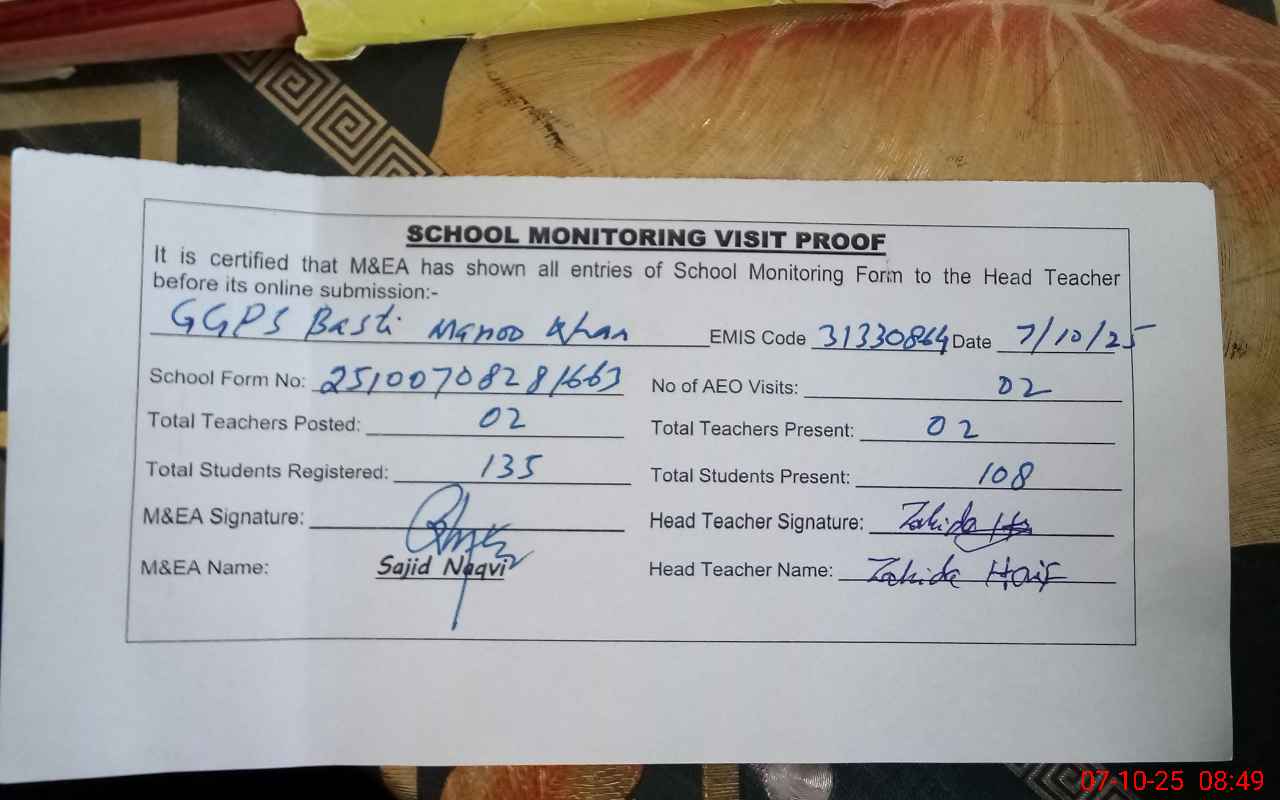 SCHOOL MONITORING VISIT PROOF
It is certified that M&EA has shown all entries of School Monitoring Form to the Head Teacher
before its online submission:-
GGPS Basti Manoo Khan EMIS Code 31330864 Date 7/10/25
School Form No: 25100708281663 No of AEO Visits: 02
Total Teachers Posted: 02 Total Teachers Present: 02
Total Students Registered: 135 Total Students Present: 108
M&EA Signature: Head Teacher Signature: Zahida
M&EA Name: Sajid Naqvi Head Teacher Name: Zahida
07-10-25 08:49